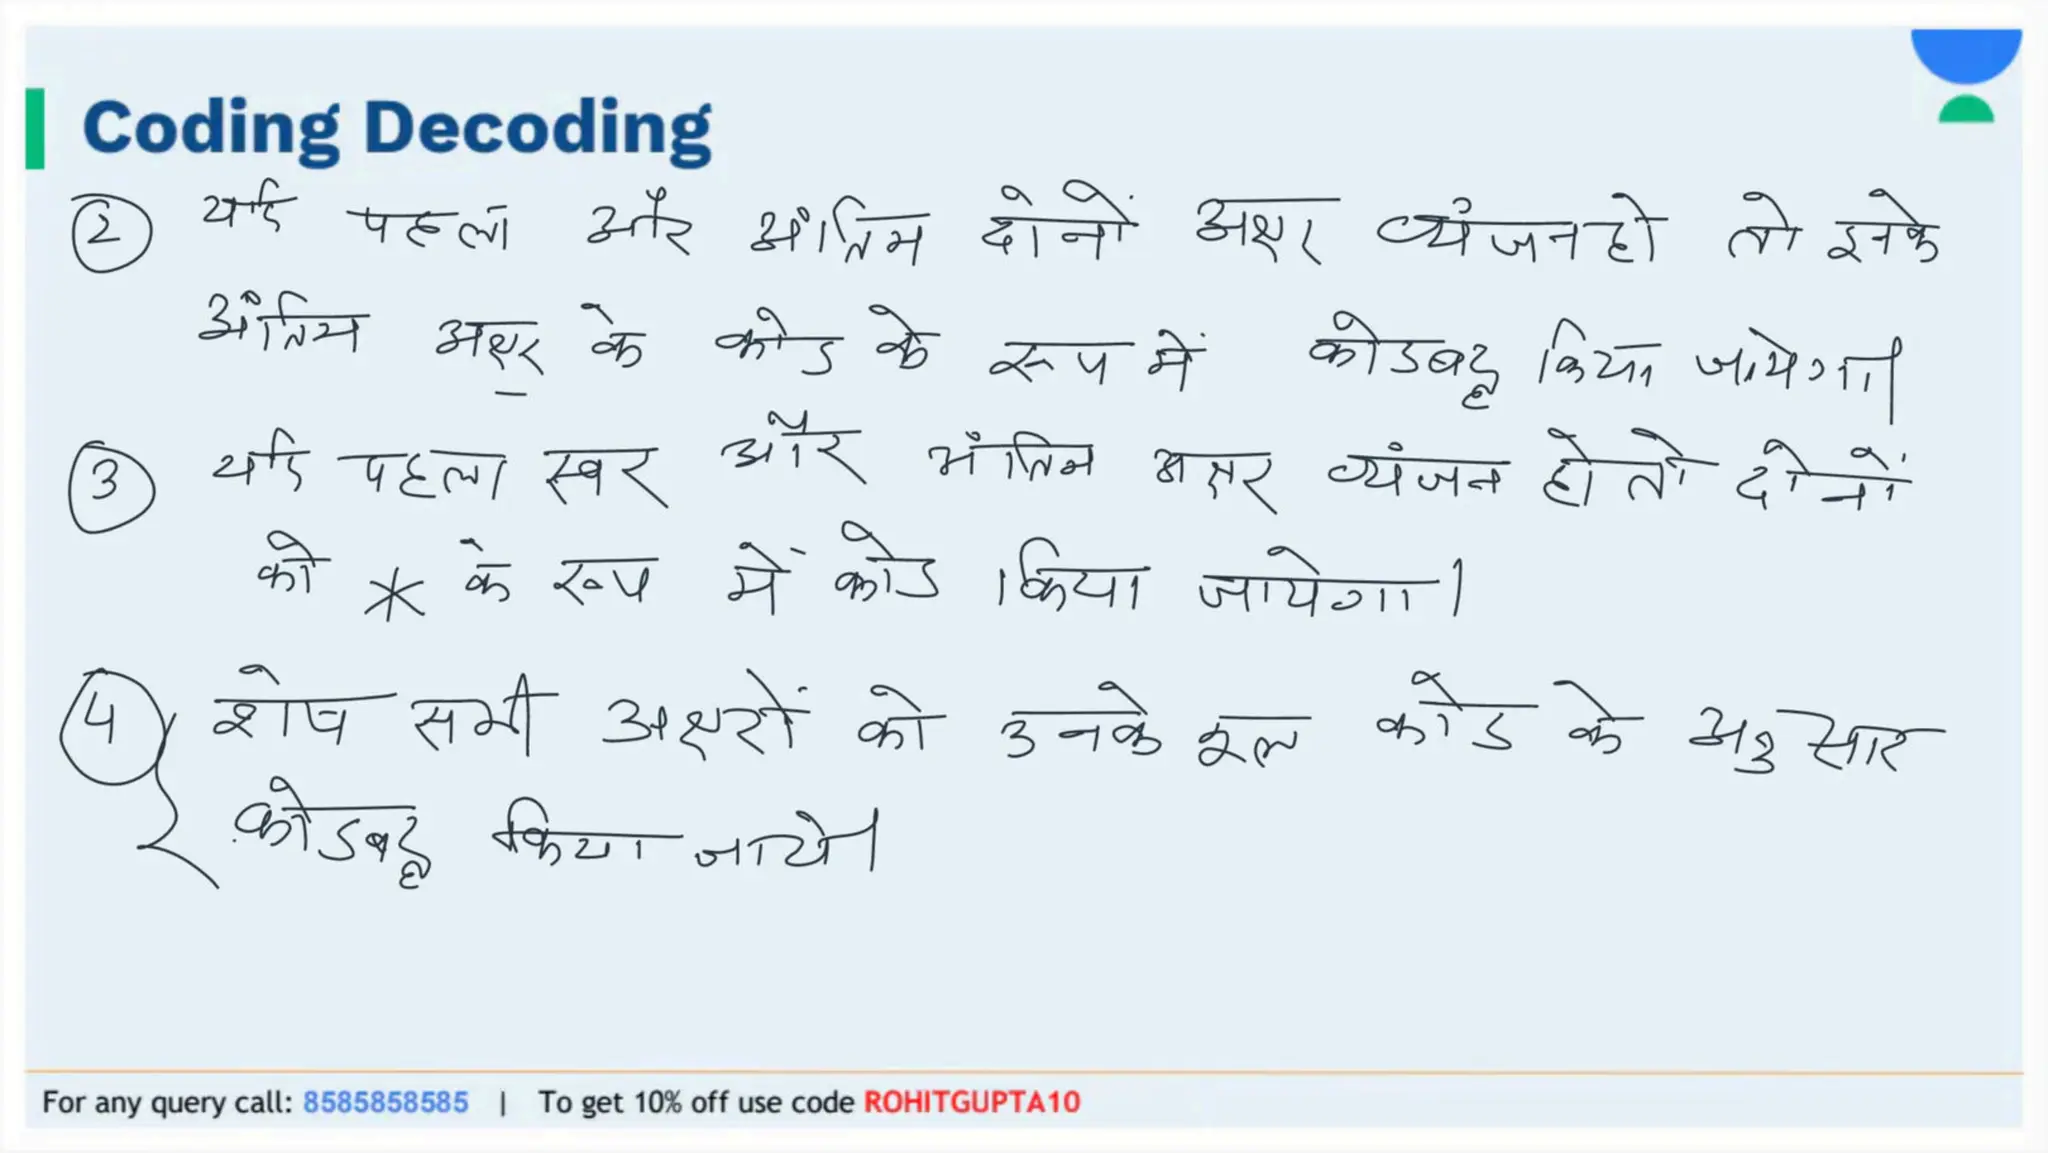 Coding Decoding
2 यदि पहला और अंतिम दोनों अक्षर व्यंजन हो तो इनके
अंतिम अक्षर के कोड के रूप में कोडबद्ध किया जायेगा।
3 यदि पहला स्वर और अंतिम अक्षर व्यंजन हो तो दोनों
को * के रूप में कोड किया जायेगा।
4 शेष सभी अक्षरों को उनके मूल कोड के अनुसार
कोडबद्ध किया जाये।
For any query call: 8585858585 | To get 10% off use code ROHITGUPTA10